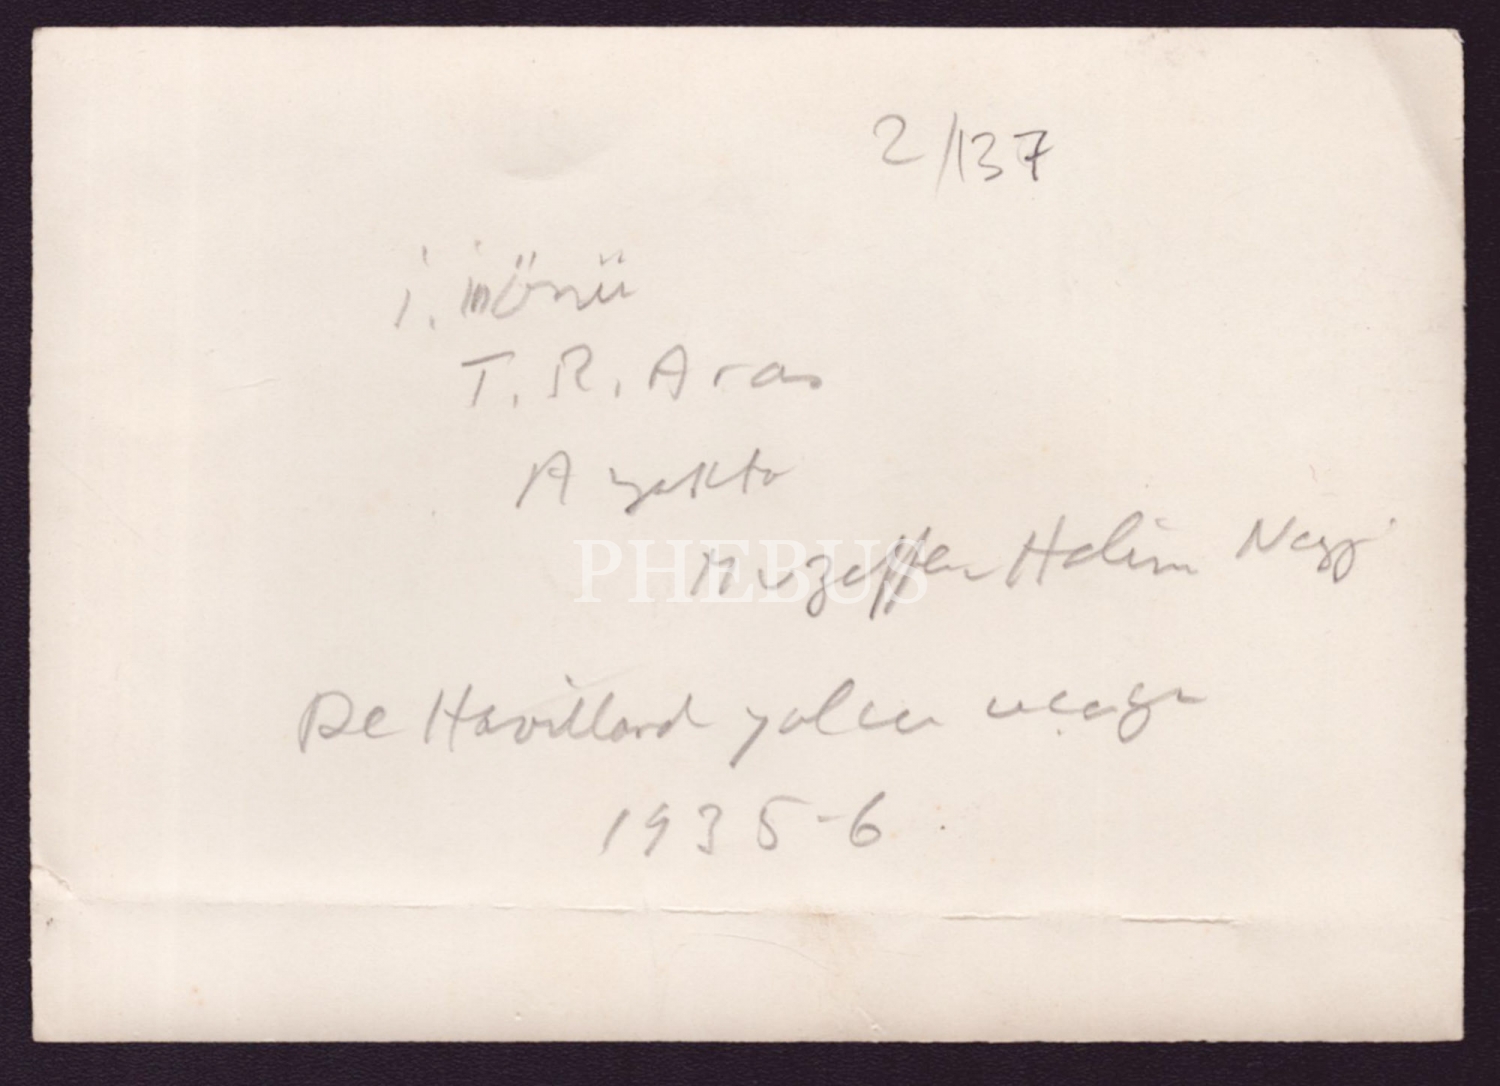 2/137
İ. İnönü
T. R. Aras
Ayakta
Muzaffer Halim Nazgı
PHEBUS
De Havilland yolcu uçağı
1935-6